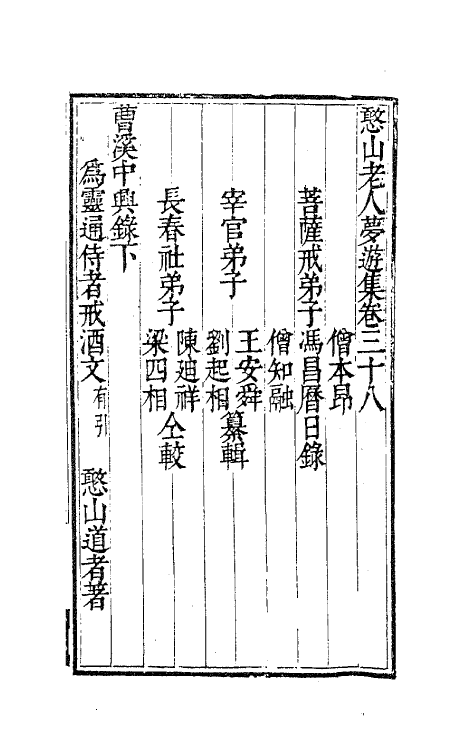 憨山老人夢遊集卷三十八
僧本昂
菩薩戒弟子馮昌曆日錄
僧知融
王安舜
宰官弟子 纂輯
劉起相
陳廸祥
長春社弟子 仝較
梁四相
曹溪中興錄下
爲靈通侍者戒酒文有引 憨山道者著